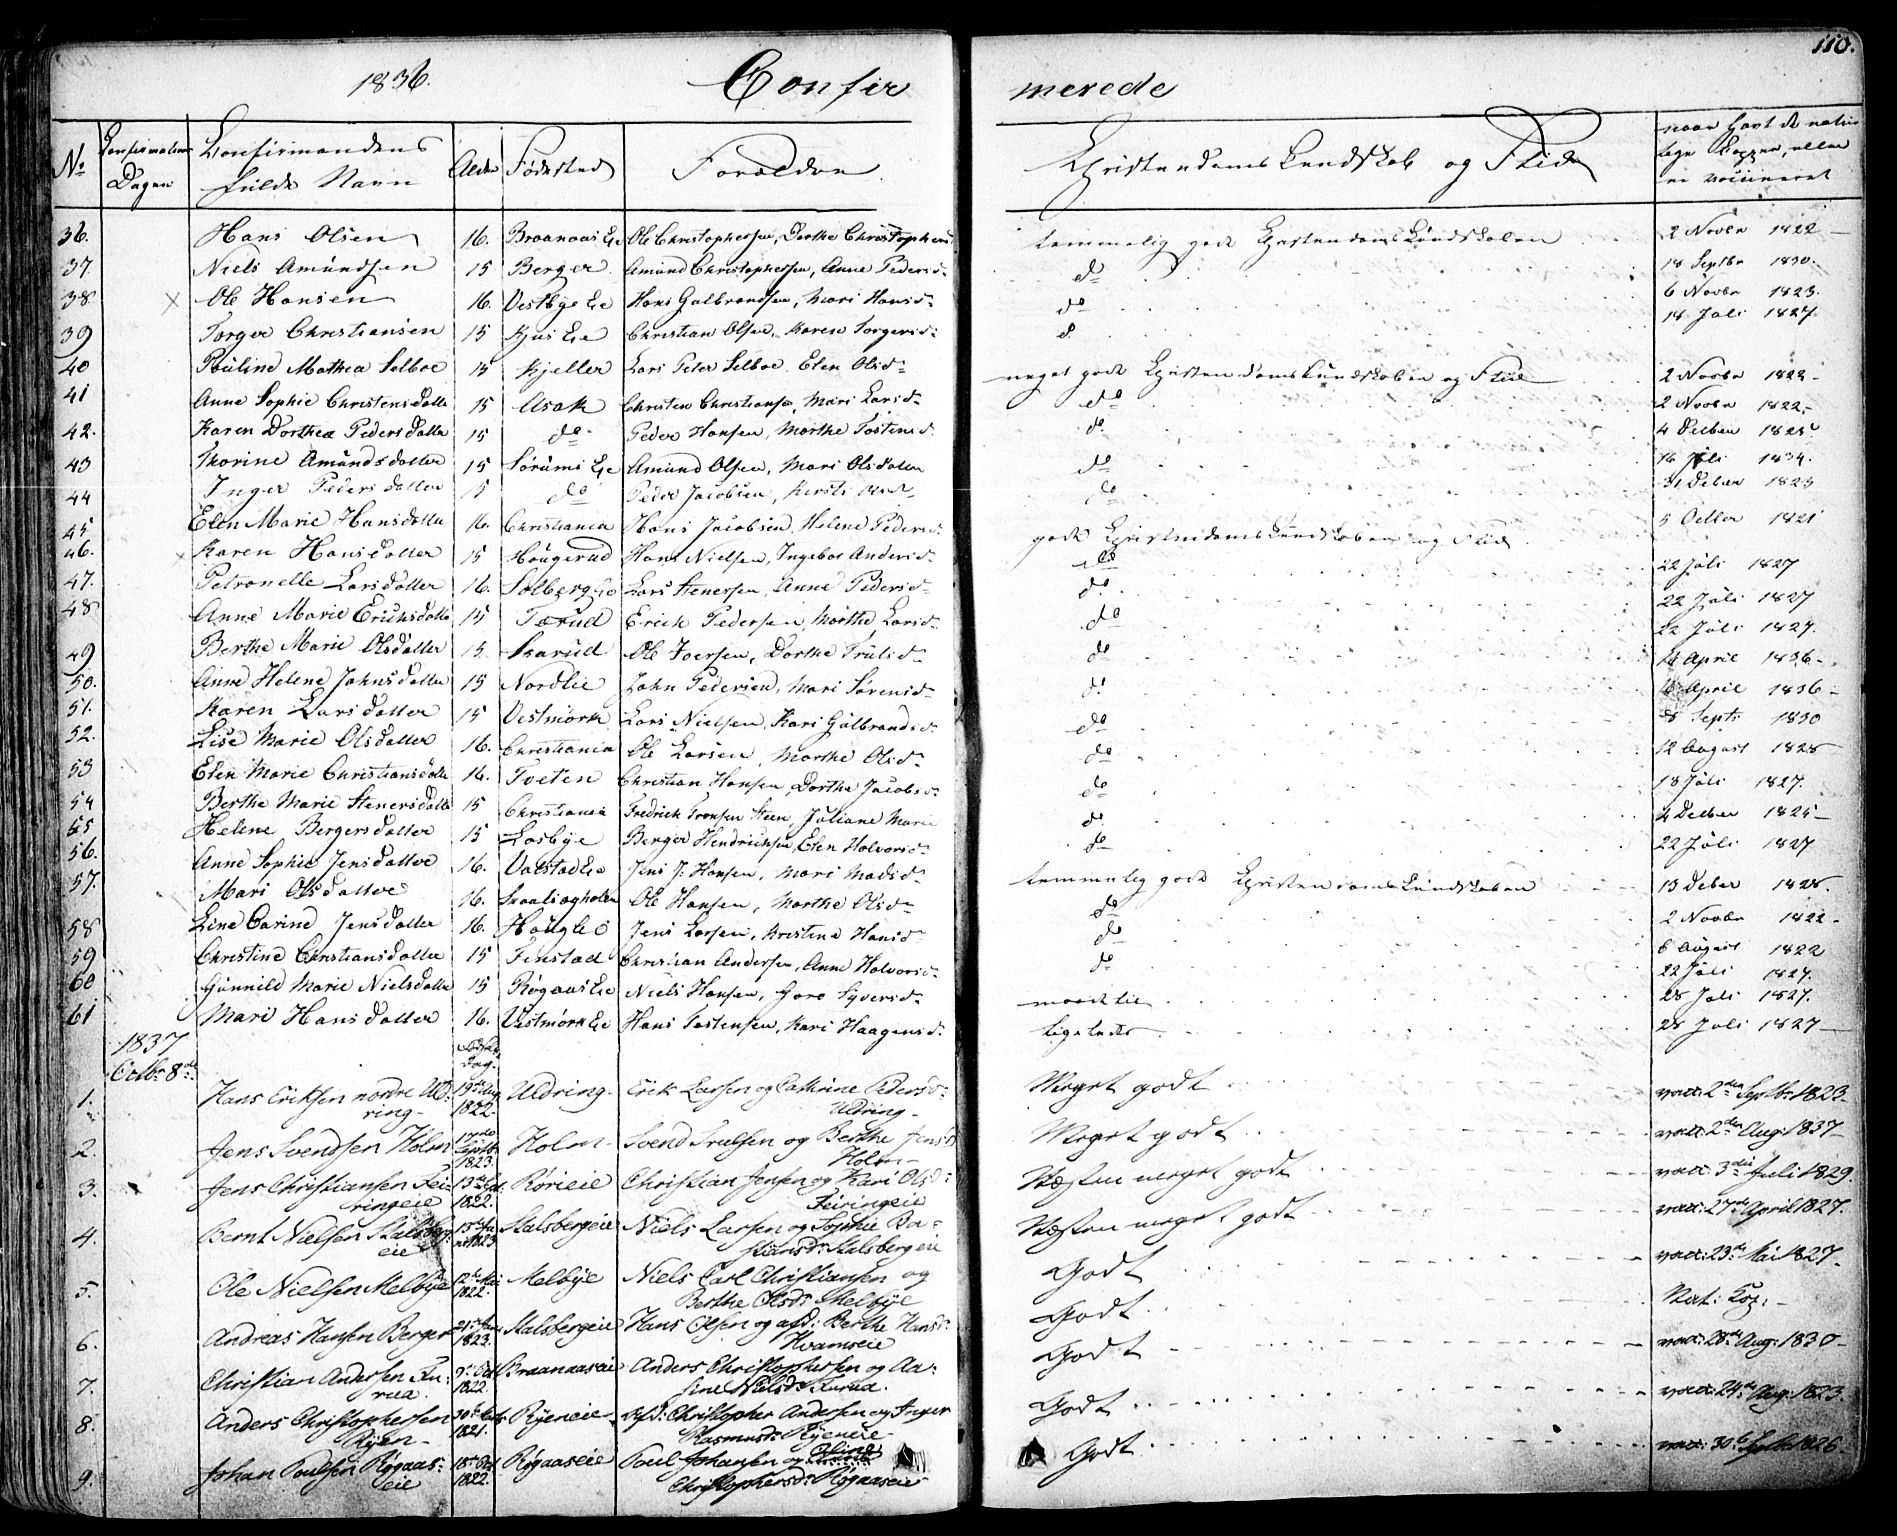 110.
1836. Confirmerede
No
Confirmations Dagen
Confirmandens fulde Navn
Alder
Fødested
Forældre
Christendoms Kundskab og Flid
naar havt de naturlige Kopper, eller er vaccineret
36. Hans Olsen 16. Braanaas Eie Ole Christophersen, Dorthe Christophersd temmelig gode Christendomskundskaber 2 Novbr 1822
37 Niels Amundsen 15 Berger Amund Christophersen, Anne Pedersd: do 18 Septbr 1830.
38 Ole Hansen 16. Vestbye Eie Hans Gulbrandsen, Mari Hansd: do 6 Novbr 1823.
39 Torger Christiansen 15 Kjus Eie Christian Olsen, Karen Torgersd: do 18 Juli 1827.
40 Pauline Mathea Selboe 15 Kjeller Lars Peter Selboe, Elen Olsd: meget gode Christendomskundskaber og Flid 2 Novbr 1822
41 Anne Sophie Christensdatter 15 Asak Christen Christiansen, Mari Larsd: do 2 Novbr 1822
42. Karen Dorthea Pedersdatter 15 do Peder Hansen, Marthe Tostensd: do 4 Decbr 1825
43 Thorine Amundsdatter 15 Sørums Eie Amund Olsen, Mari Olsdatter do 16 Juli 1834.
44 Inger Pedersdatter 15 do Peder Jacobsen, Kersti do 31 Decbr 1823
45 Elen Marie Hansdatter 16. Christiania Hans Jacobsen, Helene Pedersd: gode Christendomskundskaber og Flid 5 Octbr 1821
46. Karen Hansdatter 15 Haugerud Hans Nielsen, Ingebor Andersd: do 22 Juli 1827
47. Petronelle Larsdatter 16. Solberg Eie Lars Stenersen, Anne Pedersd: do 22 Juli 1827
48 Anne Marie Ericksdatter 15 Tærud Erick Pedersen, Marthe Larsd: do 22 Juli 1827.
49 Berthe Marie Olsdatter 15. Skarud Ole Iversen, Dorthe Trulsd: do 14 April 1836
50. Anne Helene Johnsdatter 15 Nordlie John Pedersen, Mari Sørensd: do April 1836
51. Karen Larsdatter 15 Vestmørk Lars Nielsen, Kari Gulbrandsd: do Septr 1830
52. Lise Marie Olsdatter 16. Christiania Ole Larsen, Marthe Olsd: do 12 August 1828
53 Elen Marie Christiansdatter 16. Tveten Christian Hansen, Dorthe Jacobsd: do 18 Juli 1827.
54 Berthe Marie Stenersdatter 15 Christiania Fredrich Tronsen Steen, Juliane Marie do 4 Decbr 1825
55 Helene Bergersdatter 15 Losbye Berger Hendricksen, Elen Halvorsd: do 22 Juli 1827
56. Anne Sophie Jensdatter 16. Valstad Eie Jens J: Hansen, Mari Madsd: temmelig gode Christendomskundskaber 13 Decbr 1828.
57. Mari Olsdatter 16. Skaalsogholen Ole Hansen, Marthe Olsd: do 2 Novbr 1822
58 Line Carine Jensdatter 16. Haugli Jens Larsen, Kristine Hansd: do 6 August 1822
59 Christine Christiansdatter 15 Finstad Christian Andersen, Anne Halvorsd: do 22 Juli 1827.
60 Gunnild Marie Nielsdatter 15 Røgaas Eie Niels Hansen, Goro Syversd: maadelig 28 Juli 1827.
61 Mari Hansdatter 16. Vestmørk Eie Hans Tostensen, Kari Haagensd: ligeledes 28 Juli 1827
1837
Octbr 8de
Fødsels Dag.
1. Hans Eriksen nordre Uldring 19de Aug 1822. Uldring Erik Larsen og Cathrine Pedersd: Uldring Meget godt vacc: 2den Septbr 1823
2. Jens Svendsen Holm 17de Septb 1823. Holm Svend Trulsen og Berthe Jensd Holm Meget godt vacc: 2den Aug: 1837
3. Jens Christiansen Feiringeie 13de Oct 1822. Rørieie Christian Jensen og Kari Olsd: Feiringeie Næsten meget godt vacc: 3die Juli 1829.
4. Bernt Nielsen Stalsbergeie 13de Ja 1823 Stalsbergeie Niels Larsen og Sophie Bastiansd: Stalsbergeie Næsten meget godt vacc: 27de April 1827.
5. Ole Nielsen Melbye 12te Mai 1822. Melbye Niels Carl Christiansen og Berthe Olsd: Melbye Godt vacc: 23de Mai 1827
6. Andreas Hansen Berger 21de Jan 1823. Stalsbergeie Hans Olsen og afd: Berthe Hansd: Hvamseie Godt Nat: Kop:
7. Christian Andersen Furua. 9de Oct 1822. Braanaaseie Anders Christophersen og Aasine Nielsd: Furua. Godt vacc: 28de Aug: 1830
8. Anders Christophersen Ryen 30te 1821. Ryeneie Afd: Christopher Andersen og Inger Rasmusd: Ryeneie Godt vacc: 24de Aug: 1823.
9. Johan Paulsen Røgaaseie 18de Oct 1822. Røgaaseie Paul Johansen og Oline Christophersd: Røgaaseie Godt vacc: 30te Septbr 1826